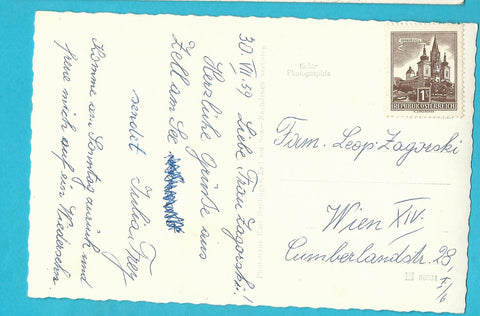 30. VII. 59
Liebe Frau Zagorski!
Herzliche Grüsse aus
Zell am See
sendet Julia Frey
Komme am Sonntag zurück und
freue mich auf ein Wiedersehn.
Echte
Photographie
REPUBLIK ÖSTERREICH
1S
Fam. Leop. Zagorski
Wien XIV.
Cumberlandstr. 23,